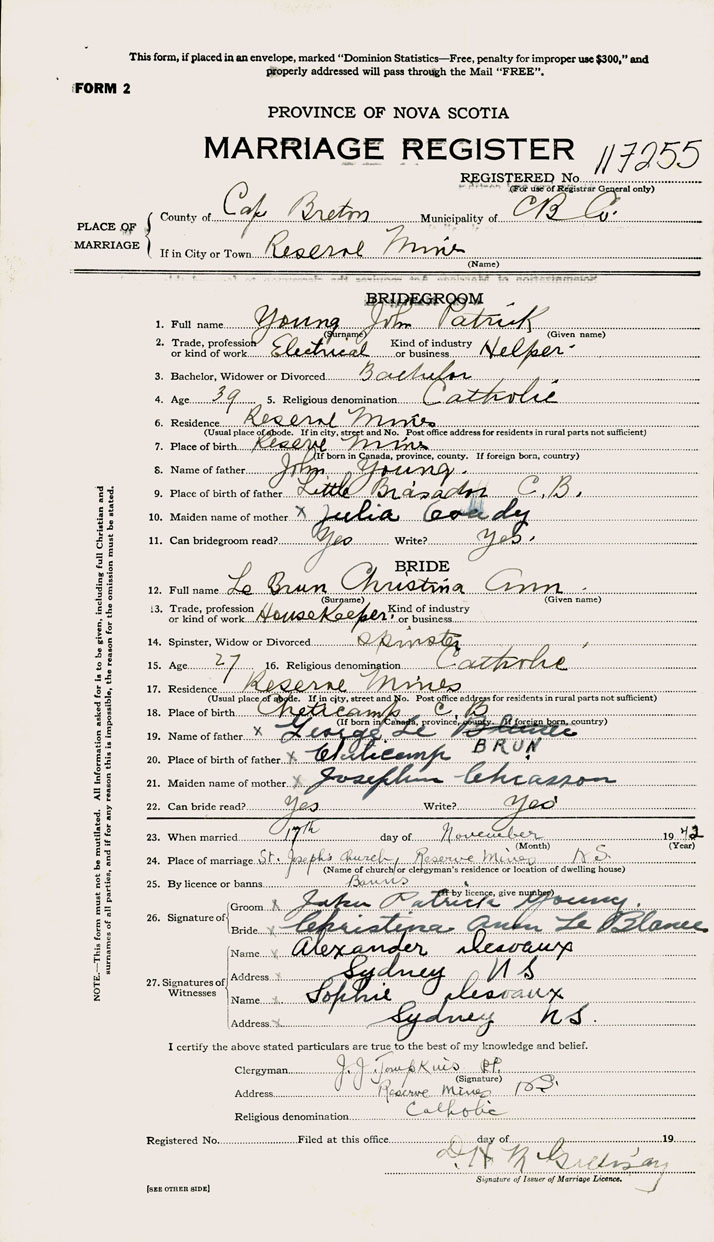 This form, if placed in an envelope, marked "Dominion Statistics—Free, penalty for improper use $300," and
properly addressed will pass through the Mail "FREE".
FORM 2
PROVINCE OF NOVA SCOTIA
MARRIAGE REGISTER
117255
REGISTERED No.
(For use of Registrar General only)
PLACE OF MARRIAGE
County of Cap Breton Municipality of CB Co.
If in City or Town Reserve Mine
(Name)
BRIDEGROOM
1. Full name Young John Patrick
(Surname) (Given name)
2. Trade, profession or kind of work Electrical Kind of industry or business Helper
3. Bachelor, Widower or Divorced Bachelor
4. Age 39 5. Religious denomination Catholic
6. Residence Reserve Mines
(Usual place of abode. If in city, street and No. Post office address for residents in rural parts not sufficient)
7. Place of birth Reserve Mines
(If born in Canada, province, county. If foreign born, country)
8. Name of father John Young.
9. Place of birth of father Little Brasador C.B.
10. Maiden name of mother x Julia Coady
11. Can bridegroom read? Yes Write? Yes.
BRIDE
12. Full name Le Brun Christina Ann
(Surname) (Given name)
13. Trade, profession or kind of work HouseKeeper. Kind of industry or business
14. Spinster, Widow or Divorced Spinster
15. Age 27 16. Religious denomination Catholic
17. Residence Reserve Mines
(Usual place of abode. If in city, street and No. Post office address for residents in rural parts not sufficient)
18. Place of birth Cheticamp C.B
(If born in Canada, province, county. If foreign born, country)
19. Name of father x George Le
BRUN
20. Place of birth of father x Cheticamp
21. Maiden name of mother x Josephin Chiasson
22. Can bride read? Yes Write? Yes
23. When married 17th day of November 1942
(Month) (Year)
24. Place of marriage St. Joseph's Church, Reserve Mines N.S.
(Name of church or clergyman's residence or location of dwelling house)
25. By licence or banns Banns
(If by licence, give number)
26. Signature of
Groom x John Patrick Young.
Bride x Christina Ann Le Blanc
27. Signatures of Witnesses
Name x Alexander Desvaux
Address x Sydney N S
Name x Sophie Desvaux
Address x Sydney N.S.
I certify the above stated particulars are true to the best of my knowledge and belief.
Clergyman J. J. Tompkins P.P.
(Signature)
Address Reserve Mines N.S.
Religious denomination Catholic
Registered No. Filed at this office day of 19
Signature of Issuer of Marriage Licence.
[SEE OTHER SIDE]
NOTE.—This form must not be mutilated. All information asked for is to be given, including full Christian and
surnames of all parties, and if for any reason this is impossible, the reason for the omission must be stated.